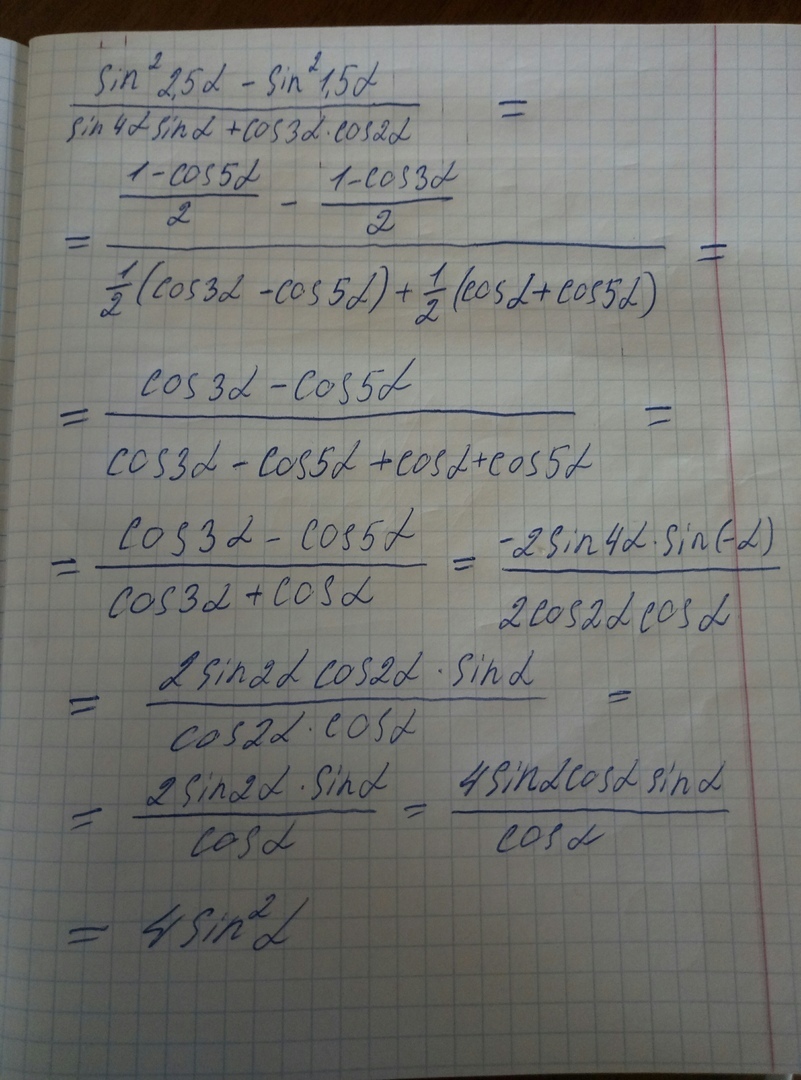 (sin²2,5α - sin²1,5α)/(sin4α sinα + cos3α·cos2α) =
= ((1-cos5α)/2 - (1-cos3α)/2)/(1/2(cos3α - cos5α) + 1/2(cosα + cos5α)) =
= (cos3α - cos5α)/(cos3α - cos5α + cosα + cos5α) =
= (cos3α - cos5α)/(cos3α + cosα) = (-2sin4α·sin(-α))/(2cos2α cosα)
= (2sin2α cos2α · sinα)/(cos2α · cosα) =
= (2sin2α · sinα)/(cosα) = (4sinα cosα sinα)/(cosα)
= 4sin²α